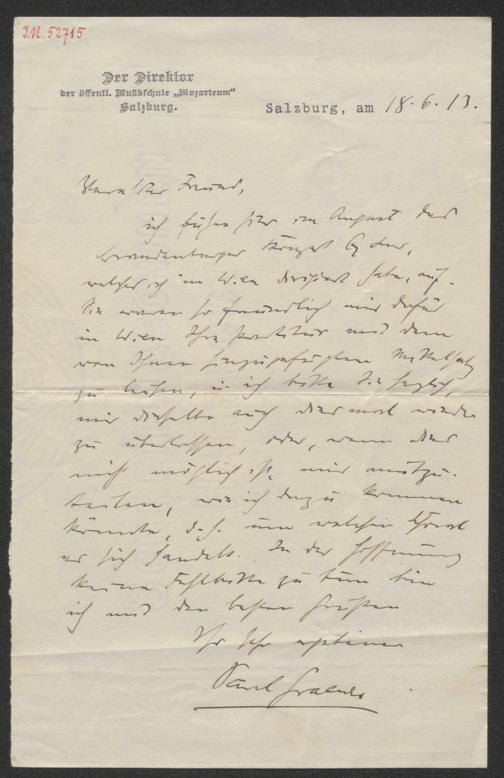 I.N. 52715
Der Direktor
der öffentl. Musikschule „Mozarteum"
Salzburg.
Salzburg, am 18.6.13.
Verehrter Freund,
ich führe hier im August das
brandenburger Konzert G dur,
welches ich in Wien dirigiert habe, auf.
Sie waren so freundlich mir dafür
in Wien Ihre Partitur mit dem
von Ihnen hinzugefügten Mittelsatz
zu leihen, u. ich bitte Sie herzlich,
mir dieselbe auch diesmal wieder
zu überlassen, oder, wenn dies
nicht möglich ist, mir mitzu-
teilen, wie ich dazu kommen
könnte, d.h. um welchen
es sich handelt. In der Hoffnung
keine Fehlbitte zu tun bin
ich mit den besten Grüßen
Ihr sehr ergebener
Paul Graener